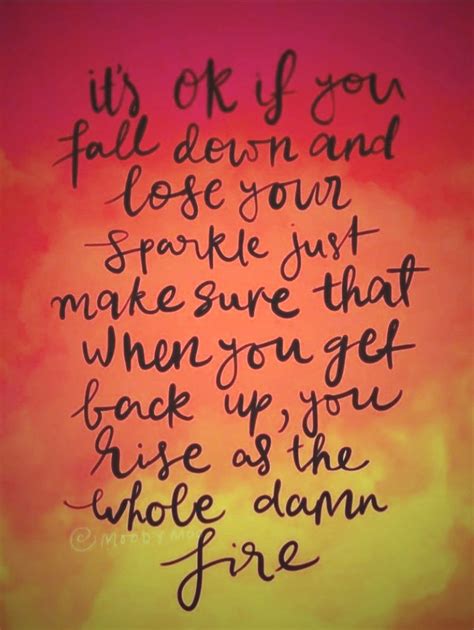 it's ok if you
fall down and
lose your
sparkle just
make sure that
when you get
back up, you
rise as the
whole damn
fire